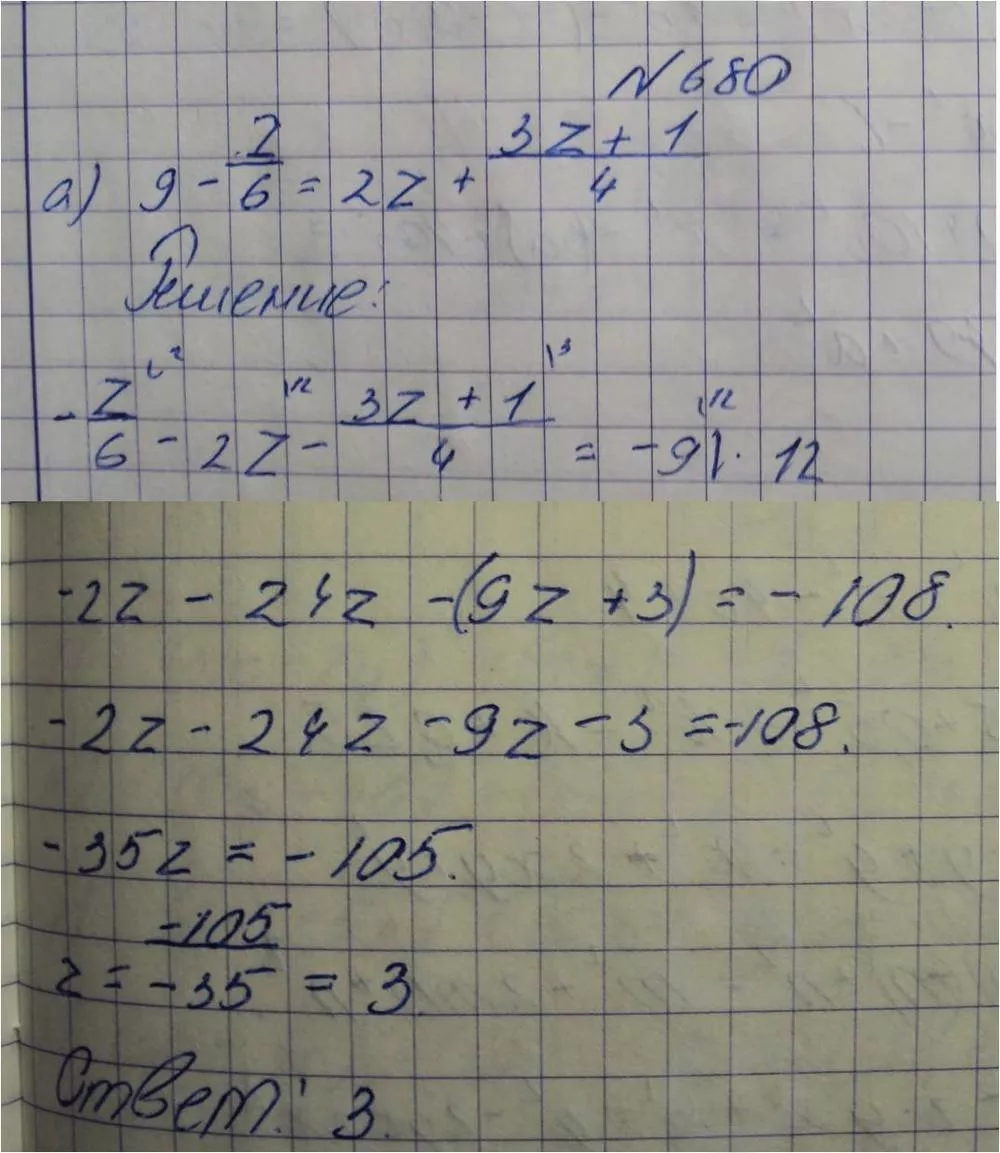 N 680
а) 9 - z/6 = 2z + (3z + 1)/4
Решение:
- z/6 \2 - 2z \12 - (3z + 1)/4 \3 = -9 \12 |· 12
-2z - 24z - (9z + 3) = - 108.
-2z - 24z - 9z - 3 = -108.
-35z = - 105.
z = -105/-35 = 3
Ответ: 3.